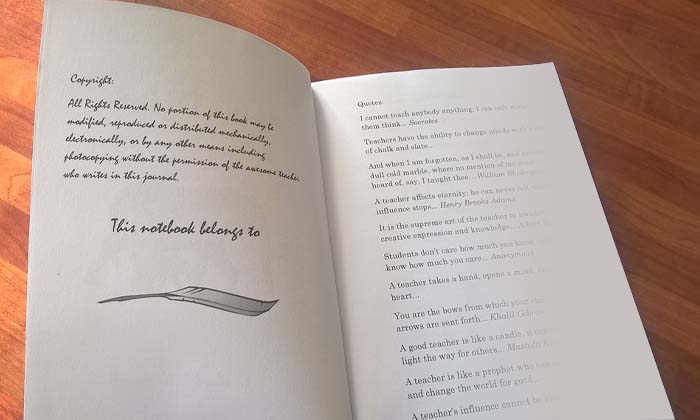 Copyright:
All Rights Reserved. No portion of this book may be
modified, reproduced or distributed mechanically,
electronically, or by any other means including
photocopying without the permission of the awesome teacher
who writes in this journal.
This notebook belongs to
Quotes:
I cannot teach anybody anything, I can only make
them think... Socrates
Teachers have the ability to change minds with
of chalk and slate...
And when I am forgotten, as I shall be, and
dull cold marble, where no mention of me
heard of, say, I taught thee... William
A teacher affects eternity; he can never tell
influence stops... Henry Brooks Adams
It is the supreme art of the teacher to
creative expression and knowledge...
Students don't care how much you know
know how much you care... Anonymous
A teacher takes a hand, opens a mind,
heart...
You are the bows from which your
arrows are sent forth... Khalil Gibran
A good teacher is like a candle, it
light the way for others... Mustafa
A teacher is like a prophet who
and change the world for good...
A teacher's influence cannot be